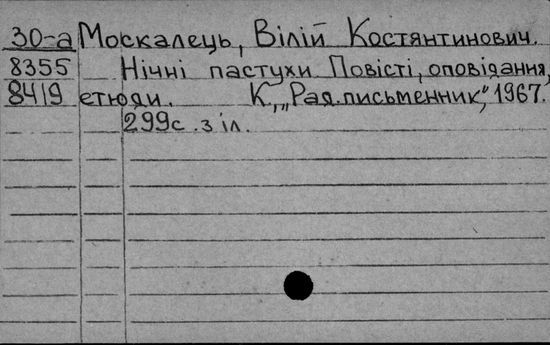 30-а Москалець, Вілій Костянтинович.
8355 Нічні пастухи Повісті, оповідання,
8419 етюди. К., „Рад.письменник," 1967.
299с. з іл.